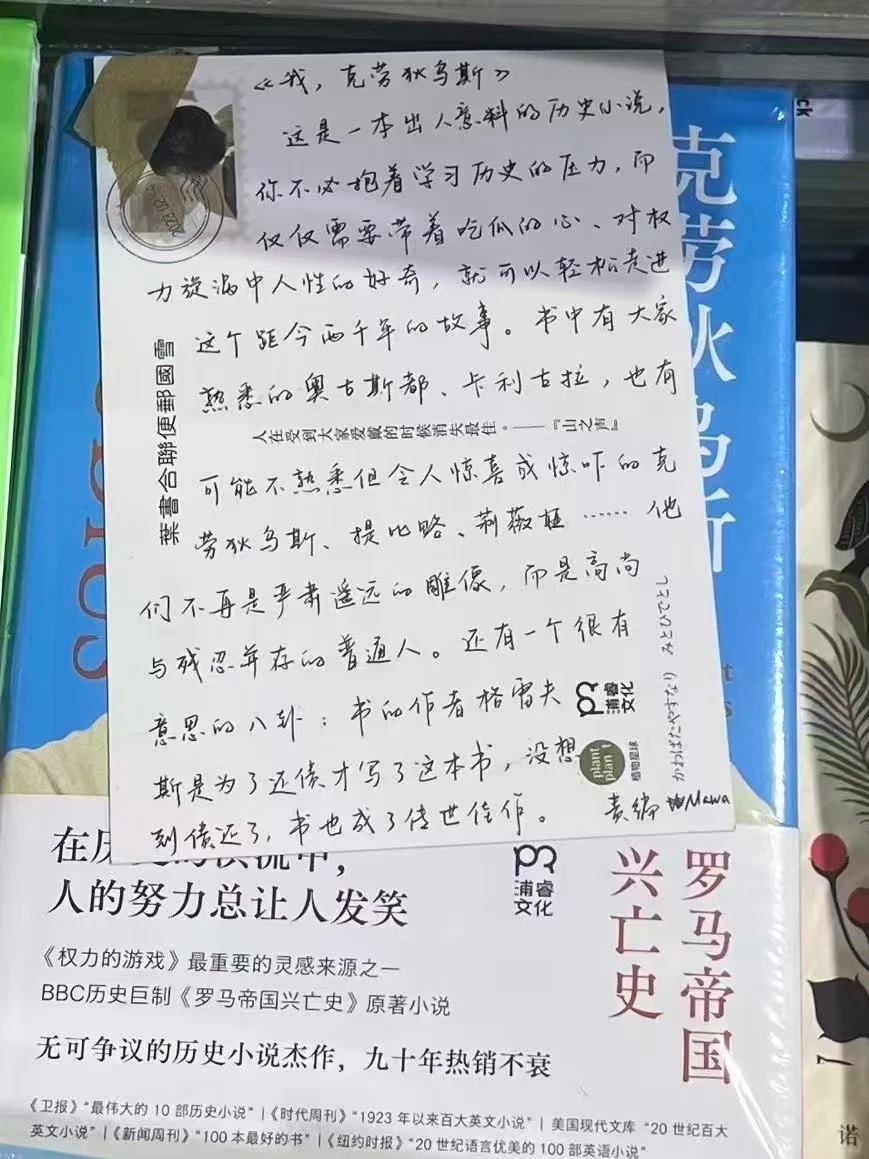 《我，克劳狄乌斯》
这是一本出人意料的历史小说，
你不必抱着学习历史的压力，而
仅仅需要带着吃瓜的心、对权
力旋涡中人性的好奇，就可以轻松走进
这个距今两千年的故事。书中有大家
熟悉的奥古斯都、卡利古拉，也有
人在受到大家爱戴的时候消失最佳。——『山之声』
可能不熟悉但令人惊喜或惊吓的克
劳狄乌斯、提比略、莉薇娅……他
们不再是严肃遥远的雕像，而是高尚
与残忍并存的普通人。还有一个很有
意思的八卦：书的作者格雷夫
斯是为了还债才写了这本书，没想
到债还了，书也成了传世佳作。
责编 Mawa
雪國郵便聯合書葉
浦睿文化
plant plan t
植物星球
かわばたやすなり みとひでとし
克劳狄乌斯
在历
人的努力总让人发笑
浦睿文化
罗马帝国
兴亡史
《权力的游戏》最重要的灵感来源之一
BBC历史巨制《罗马帝国兴亡史》原著小说
无可争议的历史小说杰作，九十年热销不衰
《卫报》“最伟大的 10 部历史小说” |《时代周刊》“1923 年以来百大英文小说” | 美国现代文库 “20 世纪百大
英文小说” |《新闻周刊》“100 本最好的书” |《纽约时报》“20 世纪语言优美的 100 部英语小说”
ck
诺